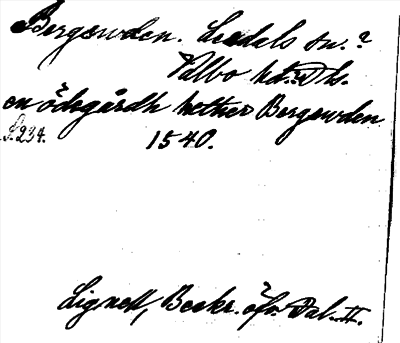 Bergewden. Leedals sn.?
Valbo hd. Ds.
en ödegårdh hether Bergewden
S. 234. 1540.
Lignell, Beskr. öfv. Dal. II.